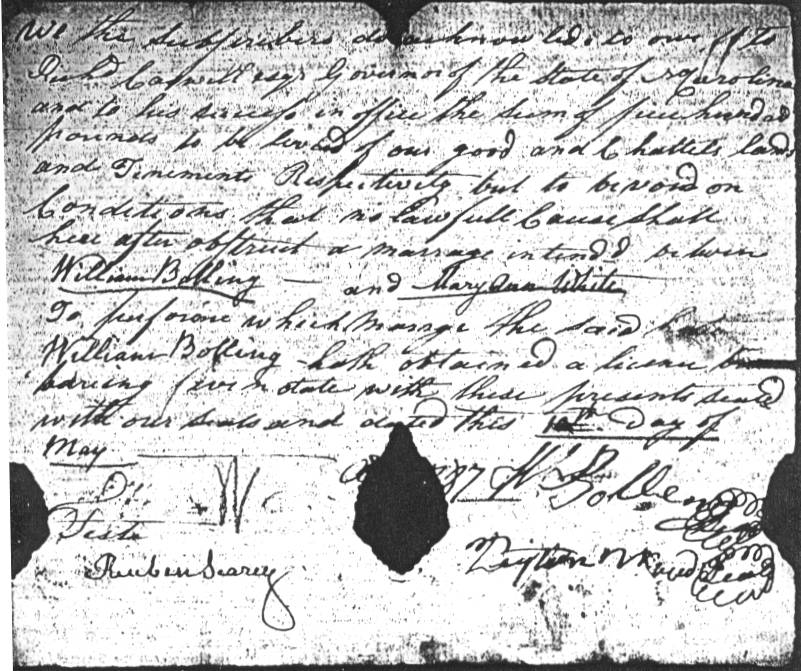 We the subscribers do acknowledge to owe to
Richd Caswell esqr Governor of the State of N Carolina
and to his success in office the sum of five hundred
pounds to be levied of our good and Chattels lands
and Tinements Respectively but to be void on
Conditions that no lawfull Cause shall
here after obstruct a marrage intend'd betwin
William Bolling and Mary Ann White
To perform which Marrage the said
William Bolling hath obtained a licence
baring even date with these presents seald
with our seals and dated this Day of
May
Wm Bolling
Teste
Reuben Searcy